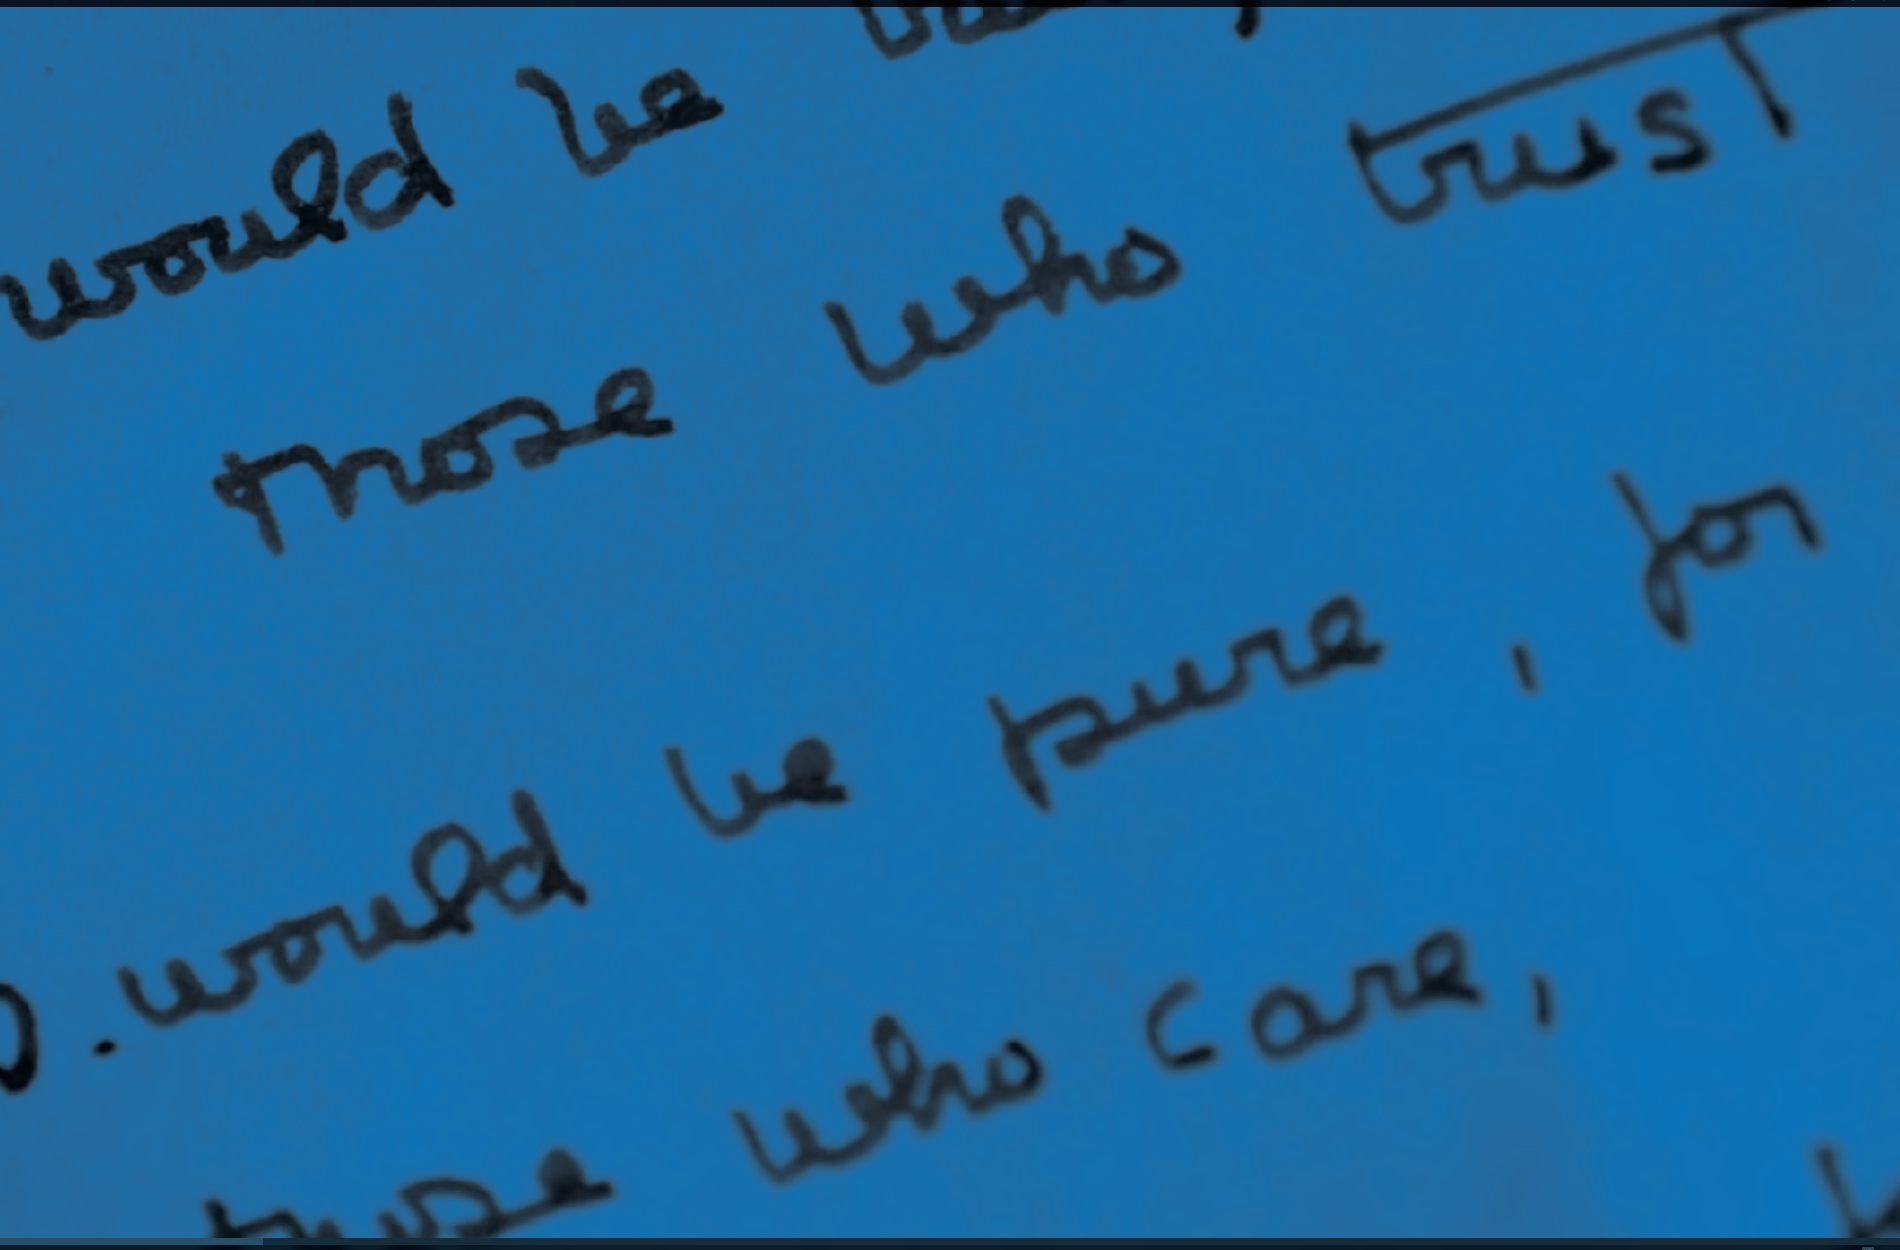 would be
those who trust
would be pure, for
those who care,